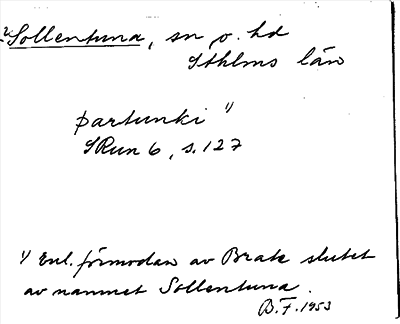 Sollentuna, sn o. hd
Sthlms län
þartunki 1)
SRun 6, s. 127
1) Enl. förmodan av Brate slutet
av namnet Sollentuna.
B.F. 1953